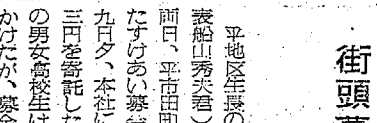 街頭募
平地区生長の
表船山秀夫君）
両日、平市田町
たすけあい募金
九日夕、本社に
三円を寄託した
の男女高校生は
かけたが、募金